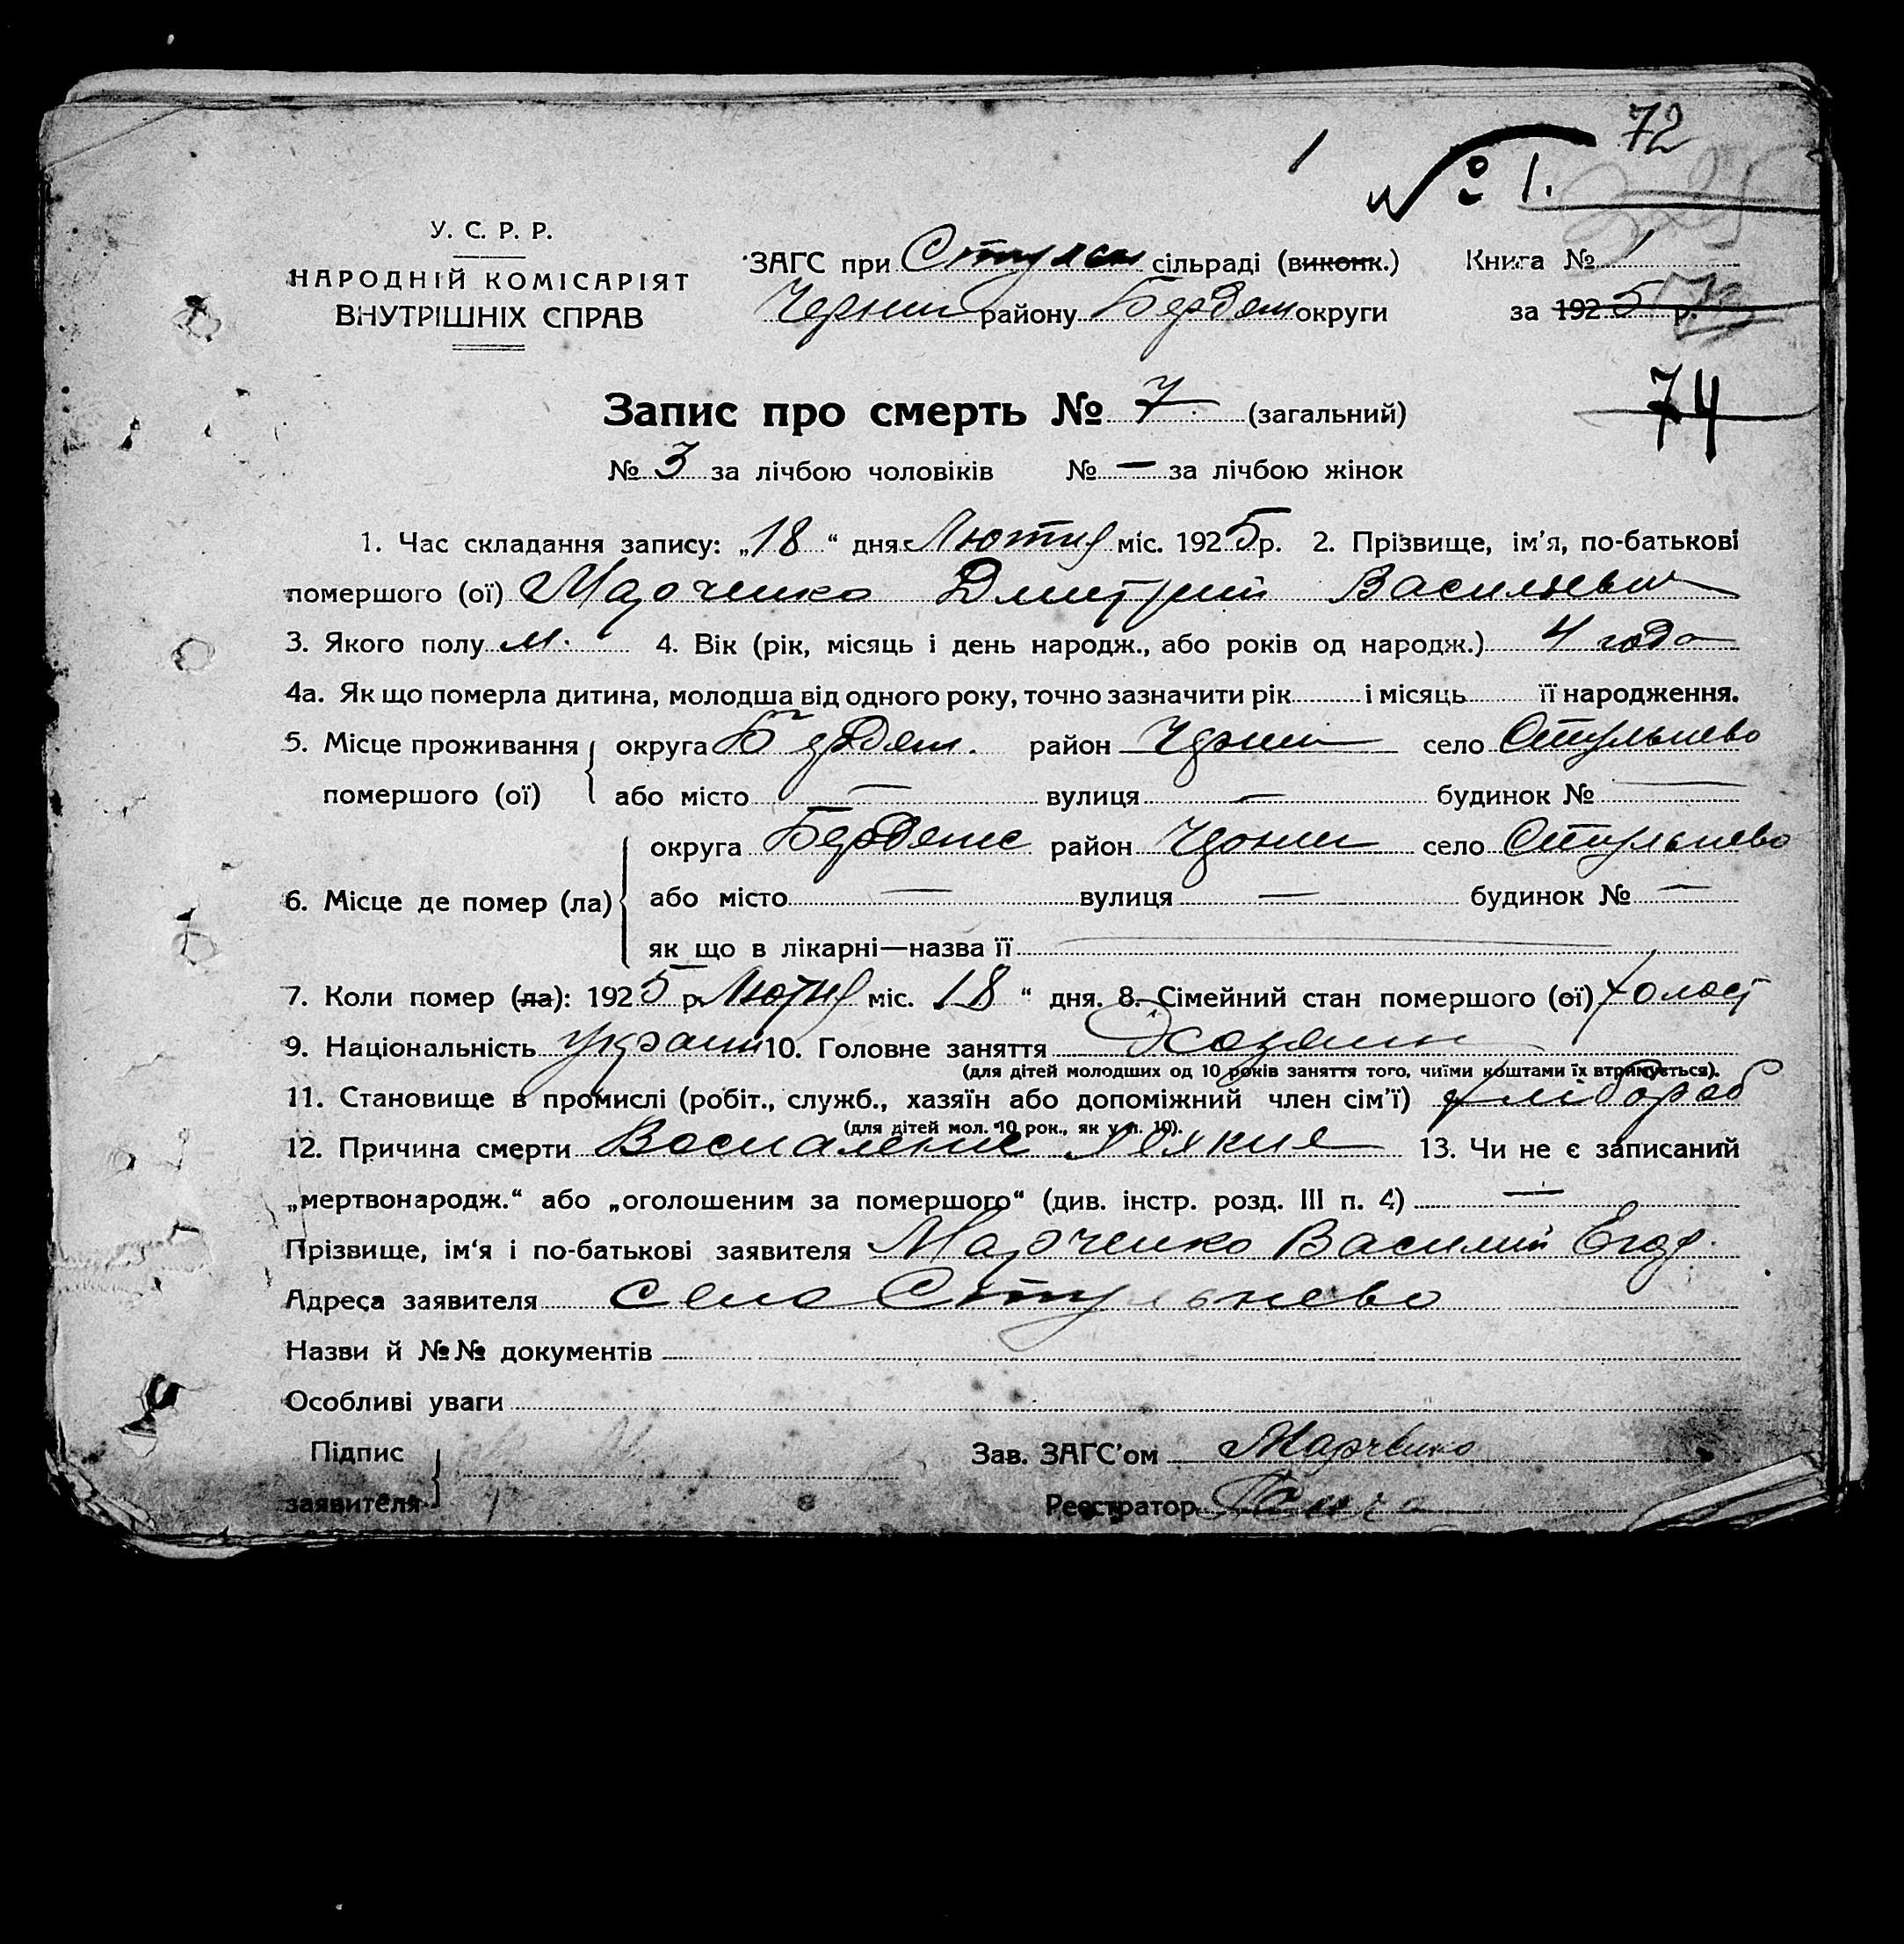 72
№ 1.
У. С. Р. Р.
НАРОДНІЙ КОМІСАРІЯТ
ВНУТРІШНІХ СПРАВ
ЗАГС при сільраді (виконк.) Книга № 1
Черниг району Бердян округи за 1925 р.
74
Запис про смерть № 7. (загальний)
№ 3 за лічбою чоловіків № — за лічбою жінок
1. Час складання запису: „18“ дня Лютня міс. 1925 р. 2. Прізвище, ім'я, по-батькові
помершого (ої) Марченко Дмитрий Васильевич
3. Якого полу м. 4. Вік (рік, місяць і день народж., або років од народж.) 4 года
4а. Як що померла дитина, молодша від одного року, точно зазначити рік і місяць її народження.
5. Місце проживання округа Бердян. район Черниг село Стульнево
помершого (ої) або місто — вулиця — будинок № —
округа Бердянс район Черниг село Стульнево
6. Місце де помер (ла) або місто — вулиця — будинок № —
як що в лікарні—назва її —
7. Коли помер (ла): 1925 р. Лютня міс. 18 “ дня. 8. Сімейний стан помершого (ої) холост
9. Національність Украин 10. Головне заняття Хозяин
(для дітей молодших од 10 років заняття того, чиїми коштами їх втримується).
11. Становище в промислі (робіт., служб., хазяїн або допоміжний член сім'ї) хлібороб
(для дітей мол. 10 рок., як у п. 10).
12. Причина смерти Воспаление легких 13. Чи не є записаний
„мертвонародж.“ або „оголошеним за помершого“ (див. інстр. розд. III п. 4) —
Прізвище, ім'я і по-батькові заявителя Марченко Василий Егор.
Адреса заявителя село Стульнево
Назви й №№ документів
Особливі уваги
Підпис Зав. ЗАГС'ом Марченко
заявителя Реєстратор